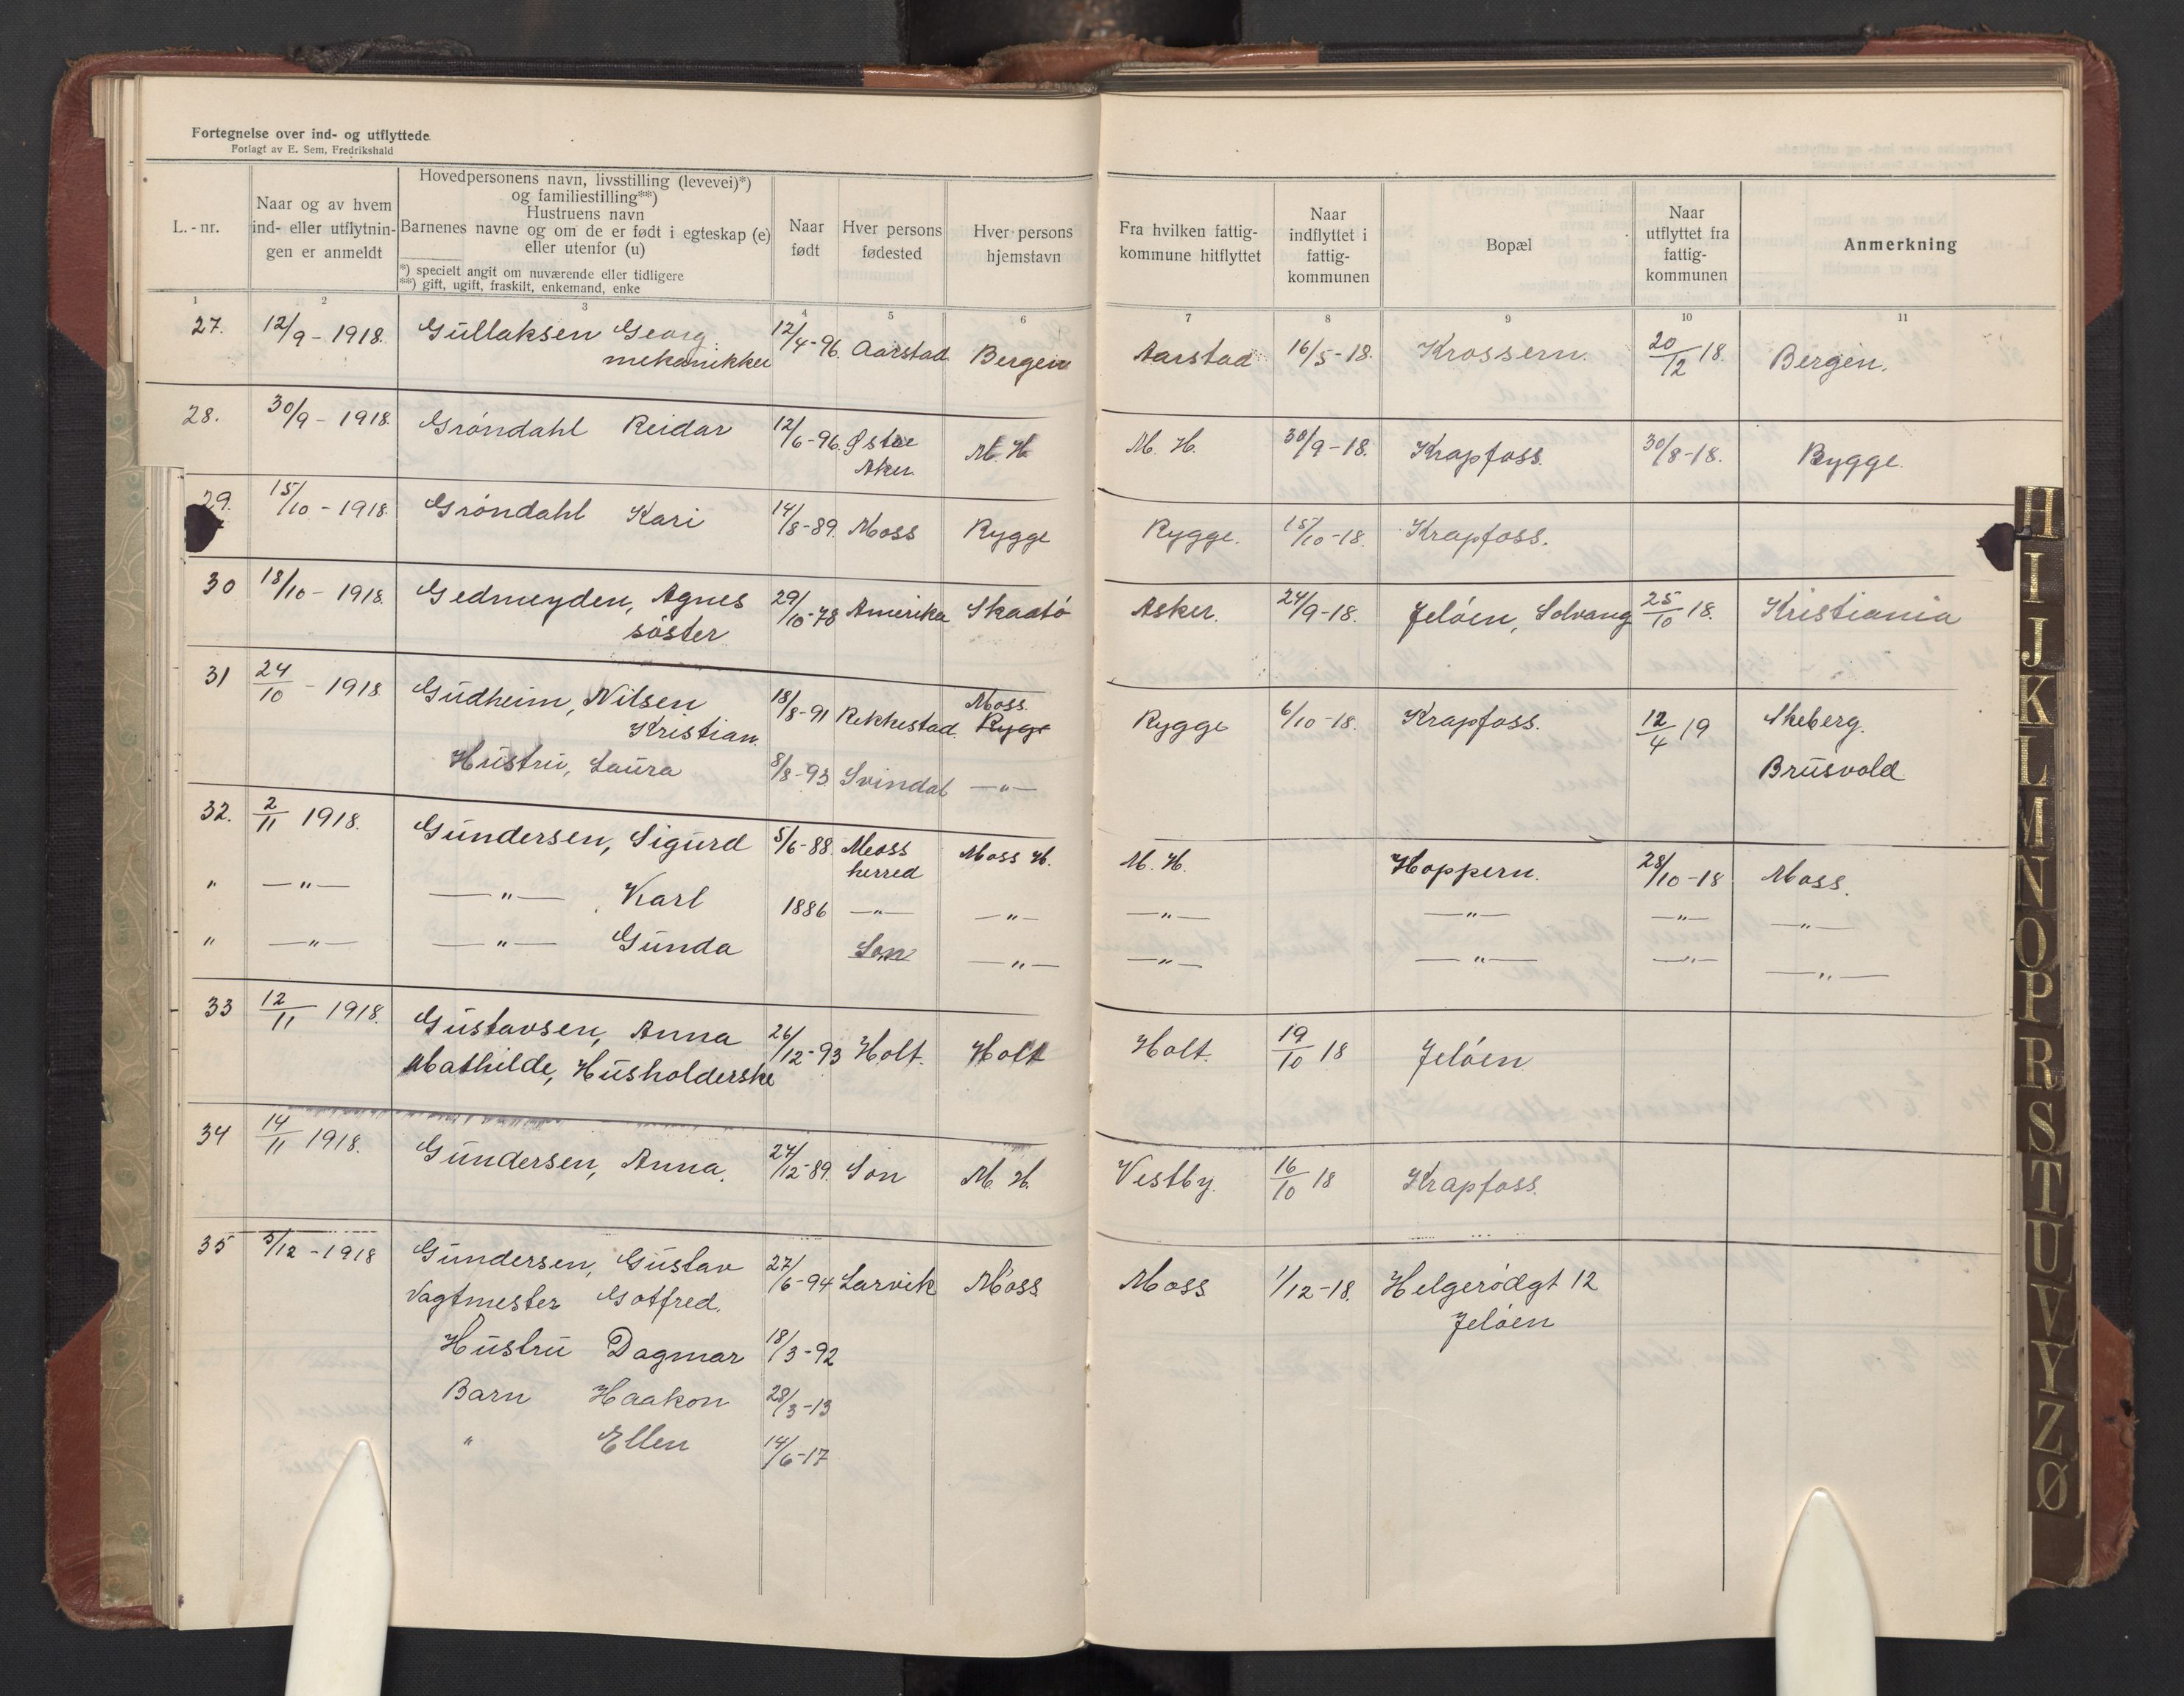 Fortegnelse over ind- og utflyttede
Forlagt av E. Sem, Fredrikshald
L.-nr.
Naar og av hvem
ind- eller utflytnin-
gen er anmeldt
Hovedpersonens navn, livsstilling (levevei)*)
og familiestilling**)
Hustruens navn
Barnenes navne og om de er født i egteskap (e)
eller utenfor (u)
*) specielt angit om nuværende eller tidligere
**) gift, ugift, fraskilt, enkemand, enke
Naar
født
Hver persons
fødested
Hver persons
hjemstavn
Fra hvilken fattig-
kommune hitflyttet
Naar
indflyttet i
fattig-
kommunen
Bopæl
Naar
utflyttet fra
fattig-
kommunen
Anmerkning
1 2 3 4 5 6 7 8 9 10 11
27. 12/9 - 1918. Gullaksen Georg. 12/4-96. Aarstad Bergen Aarstad 16/5-18. Krossern. 20/12 18. Bergen.
mekanikker
28. 30/9 - 1918. Gróndahl Reidar 12/6-96. Østre M. H. M. H. 30/9-18. Krapfoss. 30/8-18. Rygge.
Aker
29. 15/10 - 1918. Gróndahl Kari 14/8-89. Moss Rygge Rygge. 15/10-18. Krapfoss.
30 18/10 - 1918. Gedmeyden, Agnes 29/10-78 Amerika Skaató Asker. 24/9-18. Jelóen, Solvang 25/10 18. Kristiania
sóster
31 24/10 - 1918 Gudheim, Nilsen 18/8-91 Rekkestad. Moss. Rygge Rygge 6/10-18. Krapfoss. 12/4 19 Skeberg.
Kristian.
Hustru, Laura 8/8-93 Svindal —"— Brusvold
32. 2/11 1918. Gundersen, Sigurd 5/6-88. Moss Moss H. M. H. Hoppern. 28/10-18 Moss.
herred
" —"— —"— Karl 1886 —"— —"— —"— —"— —"— —"—
" —"— —"— Gunda Son —"— —"— —"— —"— —"—
33 12/11 1918. Gustavsen, Anna 26/12-93 Holt. Holt Holt. 19/10 18 Jelóen
Mathilde, Husholderske
34 14/11 1918. Gundersen, Anna. 24/12-89. Son M. H. Vestby. 16/10 18 Krapfoss.
35 3/12 - 1918 Gundersen, Gustav 27/6-94 Larvik Moss Moss 1/12-18. Helgeródgt 12
Vagtmester Gotfred. Jelóen
Hustru Dagmar 18/3-92
Barn Haakon 28/3-13
" Ellen 14/6-17
H
I
J
K
L
M
N
O
P
R
S
T
U
V
Y
Z
Ø